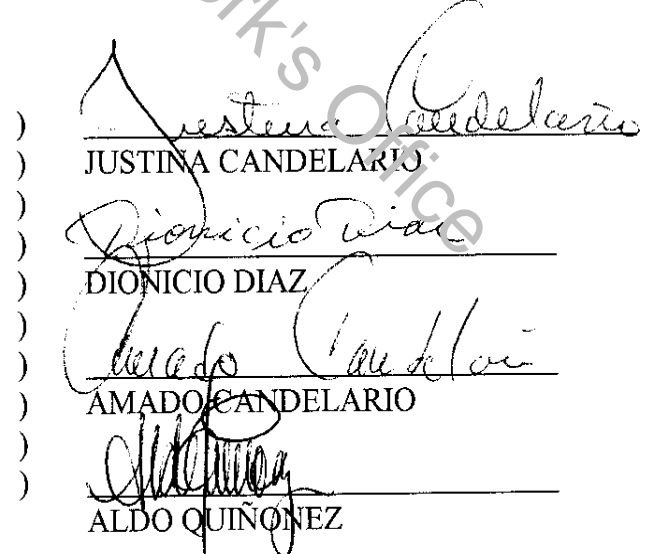 rk's Office
) Justina Candelario
) JUSTINA CANDELARIO
)
) Dionicio Diaz
) DIONICIO DIAZ
)
) Amado Candelario
) AMADO CANDELARIO
)
)
ALDO QUIÑONEZ